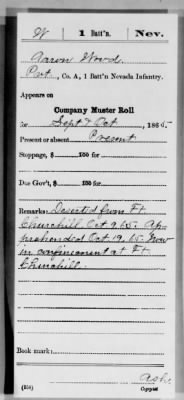 W | 1 Batt'n. | Nev.
Aaron Wood
Pvt., Co. A, 1 Batt'n Nevada Infantry.
Appears on
Company Muster Roll
for Sept & Oct, 1865
Present or absent Present
Stoppage, $ 100 for
Due Gov't, $ 100 for
Remarks: Deserted from Ft.
Churchill Oct 9, 65. Ap-
prehended Oct 19, 65. Now
in confinement at Ft.
Churchill.
Book mark:
Ash
(358) Copyist